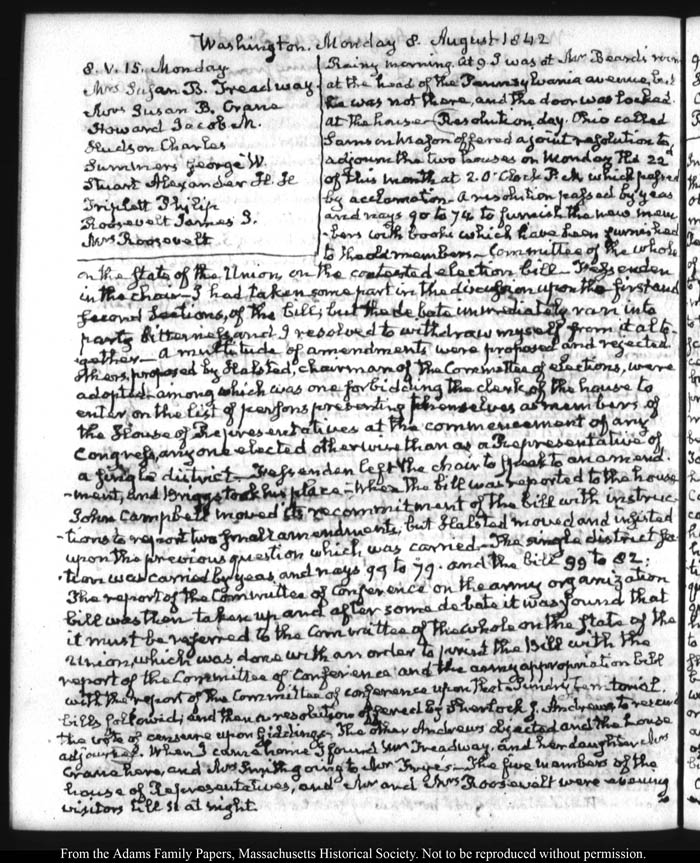 Washington. Monday 8. August 1842
8. V. 15. Monday
Mrs Susan B. Treadway
Mrs Susan B. Crane
Howard Jacob M.
Hudson Charles
Summers George W.
Stuart Alexander H. H
Triplett Philip
Roosevelt James I.
Mrs Roosevelt
Rainy morning. At 9 I was at Mr Beard's
at the head of the Pennsylvania avenue, but
he was not there, and the door was locked.
At the house Resolution day. Ohio called
Samson Mason offered a joint resolution to
adjourn the two houses on Monday the 22d
of this month at 2. O'Clock P.M. which passed
by acclamation. A resolution passed by yeas
and nays 90 to 74 to furnish the new mem
-bers with books which have been furnished
to the old members. Committee of the whole
on the State of the Union, on the contested election bill—Fessenden
in the chair—I had taken some part in the discussion upon the first and
second sections, of the bill; but the debate immediately ran into
party bitterness and I resolved to withdraw myself from it alto-
-gether—A multitude of amendments were proposed and rejected.
others, proposed by Halsted, chairman of the Committee of elections, were
adopted—among which was one forbidding the clerk of the house to
enter, on the list of persons presenting themselves as members of
the House of Representatives at the commencement of any
Congress, any one elected otherwise than as a Representative of
a single district—Fessenden left the chair to speak to an amend.
-ment, and Briggs took his place—When the bill was reported to the house
John Campbell moved its recommitment of the bill with instruc-
-tions to report two small amendments, but Halsted moved and insisted
upon the previous question which was carried—The single district Sec
-tion was carried by yeas and nays 99 to 79. and the bill 99 to 82:
The report of the Committee of Conference on the army organization
bill was then taken up and after some debate it was found that
it must be referred to the Committee of the whole on the State of the
Union, which was done with an order to print the Bill with the
report of the Committee of Conference and the army appropriation bill
with the report of the Committee of conference upon that. Territorial
bills followed; and then a resolution offered by Sherlock J. Andrews to rescind
the vote of censure upon Giddings—The other Andrews objected and the house
adjourned. When I came home I found Mrs Treadway, and her daughter Mrs
Crane here, and Mrs Smith going to Mr Frye's—The five members of the
house of Representatives, and Mr and Mrs Roosevelt were evening
visitors till 11 at night.
From the Adams Family Papers, Massachusetts Historical Society. Not to be reproduced without permission.